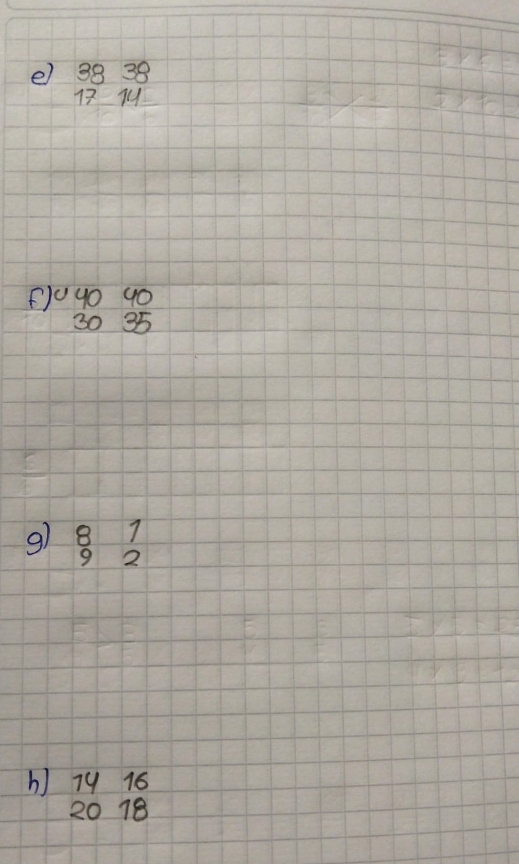 e) 38 38
17 14
f) 40 40
30 35
g) 8 1
9 2
h) 14 16
20 18